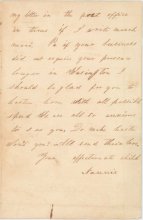 my letter in the post office
in time if I wrote much
more. Pa if your business
did not require your presence
longer in Washington I
should be glad for you to
hasten home with all possible
speed We are all so anxious
to see you Do make haste
won't you? All send their love
Your affectionate child
Nannie